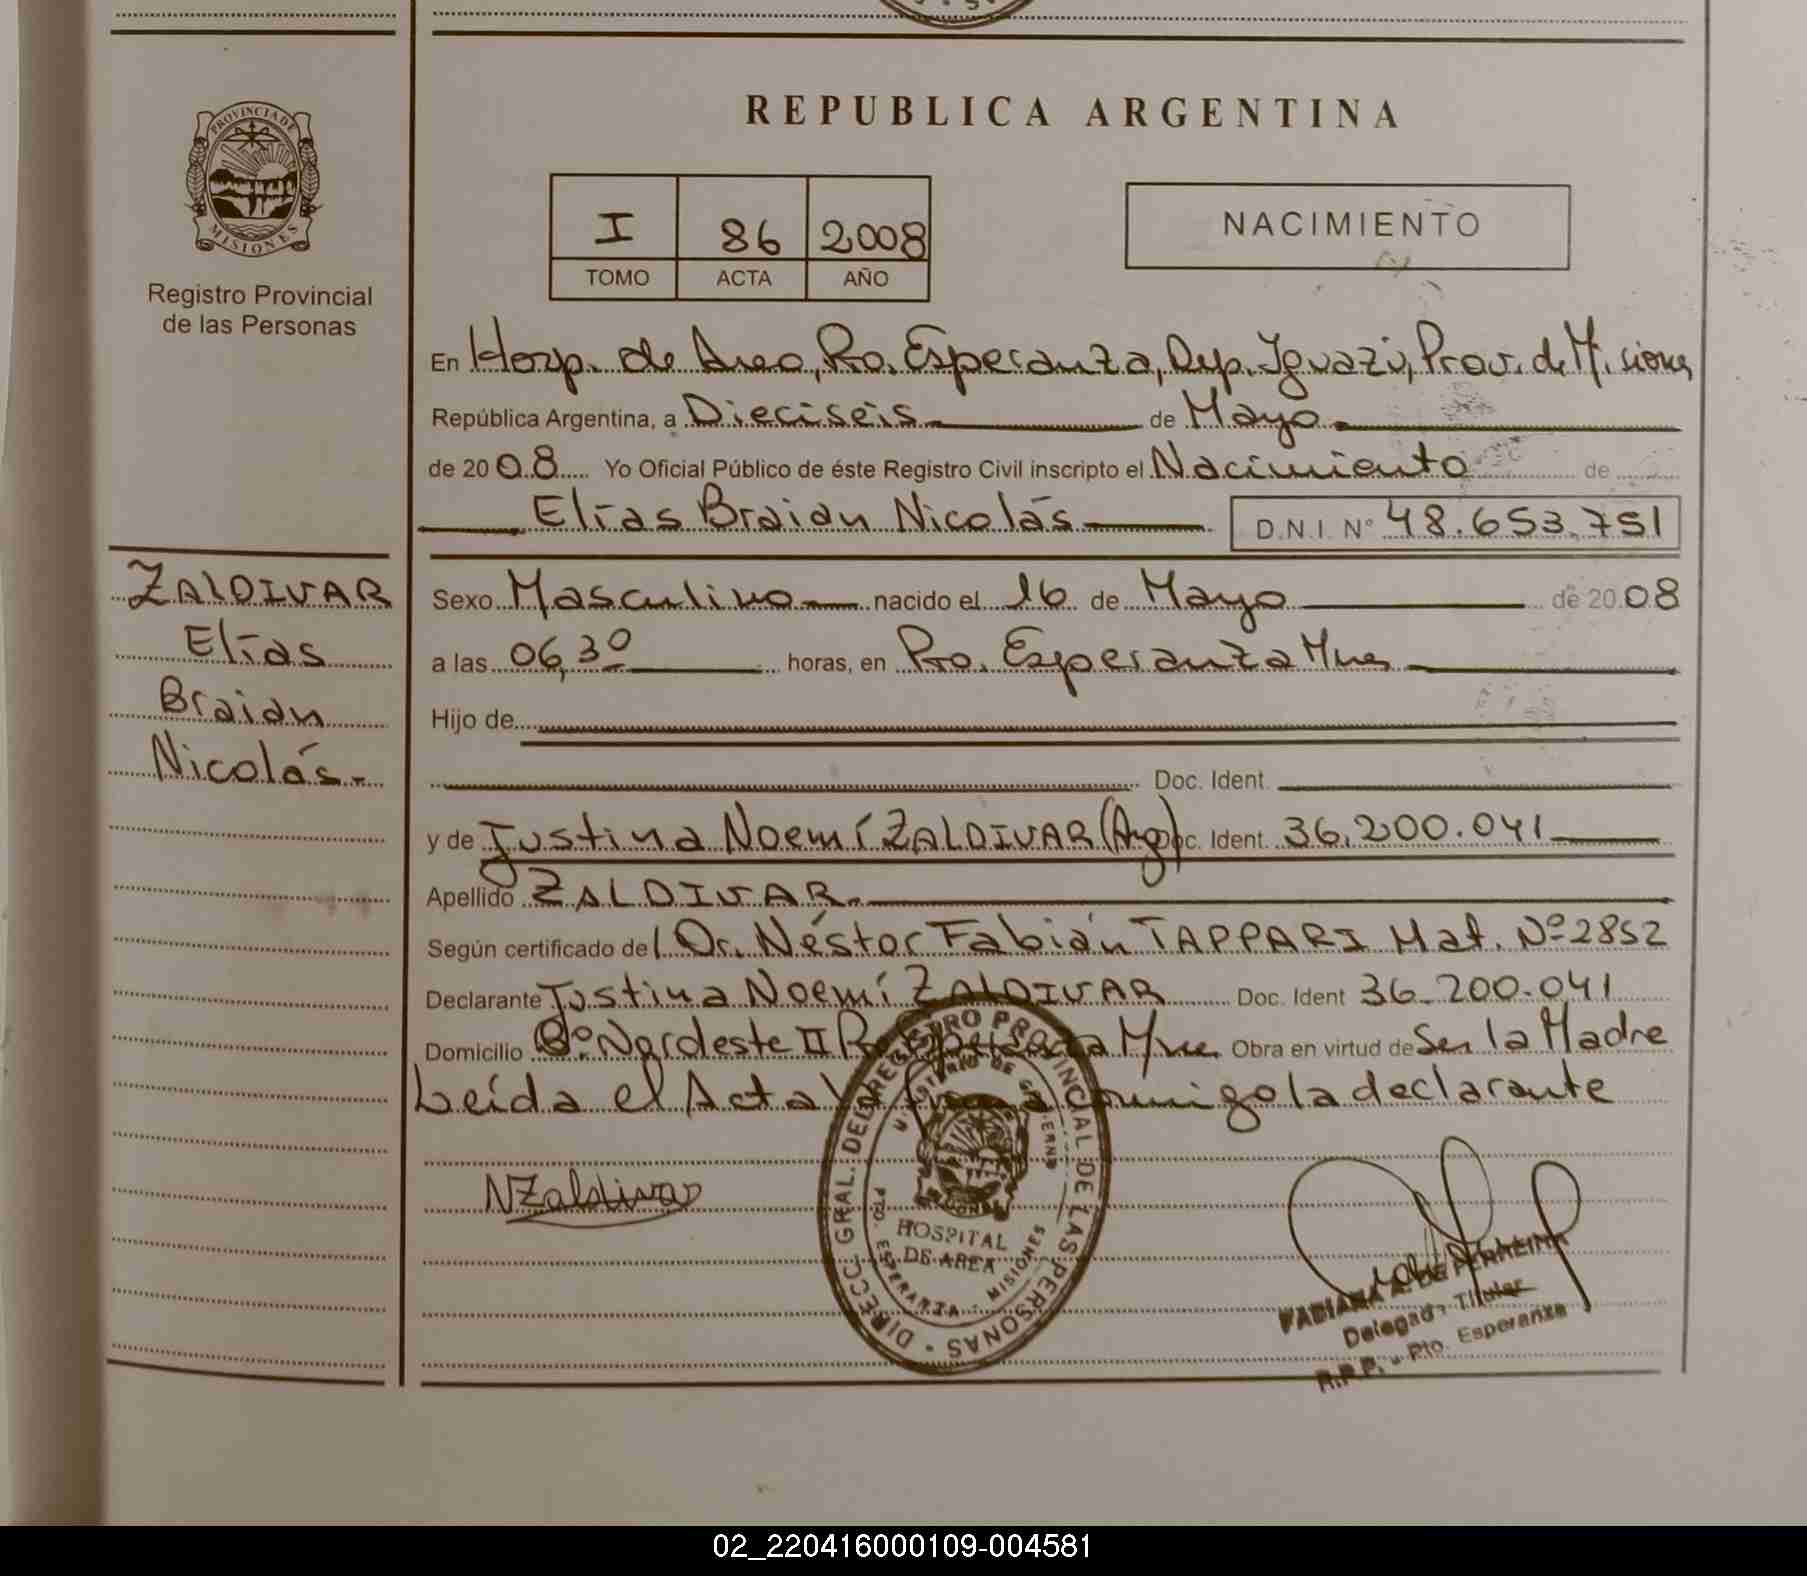 REPUBLICA ARGENTINA
PROVINCIA DE
MISIONES
Registro Provincial
de las Personas
I 86 2008
TOMO ACTA AÑO
NACIMIENTO
En Hosp. de Area, Pto. Esperanza, Dep. Iguazú, Prov. de Misiones
República Argentina, a Dieciseis de Mayo
de 2008 Yo Oficial Público de éste Registro Civil inscripto el Nacimiento de
Elías Braian Nicolás D.N.I. Nº 48.653.751
ZALDIVAR
Elías
Braian
Nicolás.-
Sexo Masculino nacido el 16 de Mayo de 2008
a las 06,30 horas, en Pto. Esperanza Mnes
Hijo de
Doc. Ident.
y de Justina Noemí ZALDIVAR (Arg) Doc. Ident. 36.200.041
Apellido ZALDIVAR.
Según certificado del Dr. Néstor Fabián TAPPARI Mat. Nº 2852
Declarante Justina Noemí ZALDIVAR Doc. Ident 36.200.041
Domicilio Bº Nordeste II Pto. Esperanza Mnes Obra en virtud de Ser la Madre
Leída el Acta firma conmigo la declarante
NZaldivar
DIRECC. GRAL. DEL REGISTRO PROVINCIAL DE LAS PERSONAS
MINISTERIO DE GOBIERNO
HOSPITAL
DE AREA
PTO. ESPERANZA - MISIONES
FABIANA A. DE PERREIRA
Delegada Titular
R.P.P. - Pto. Esperanza
02_220416000109-004581